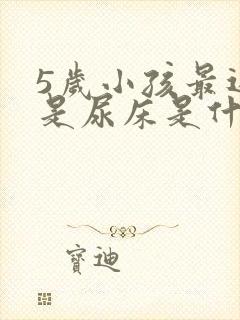 5歲小孩最近
是尿床是什
寶迪